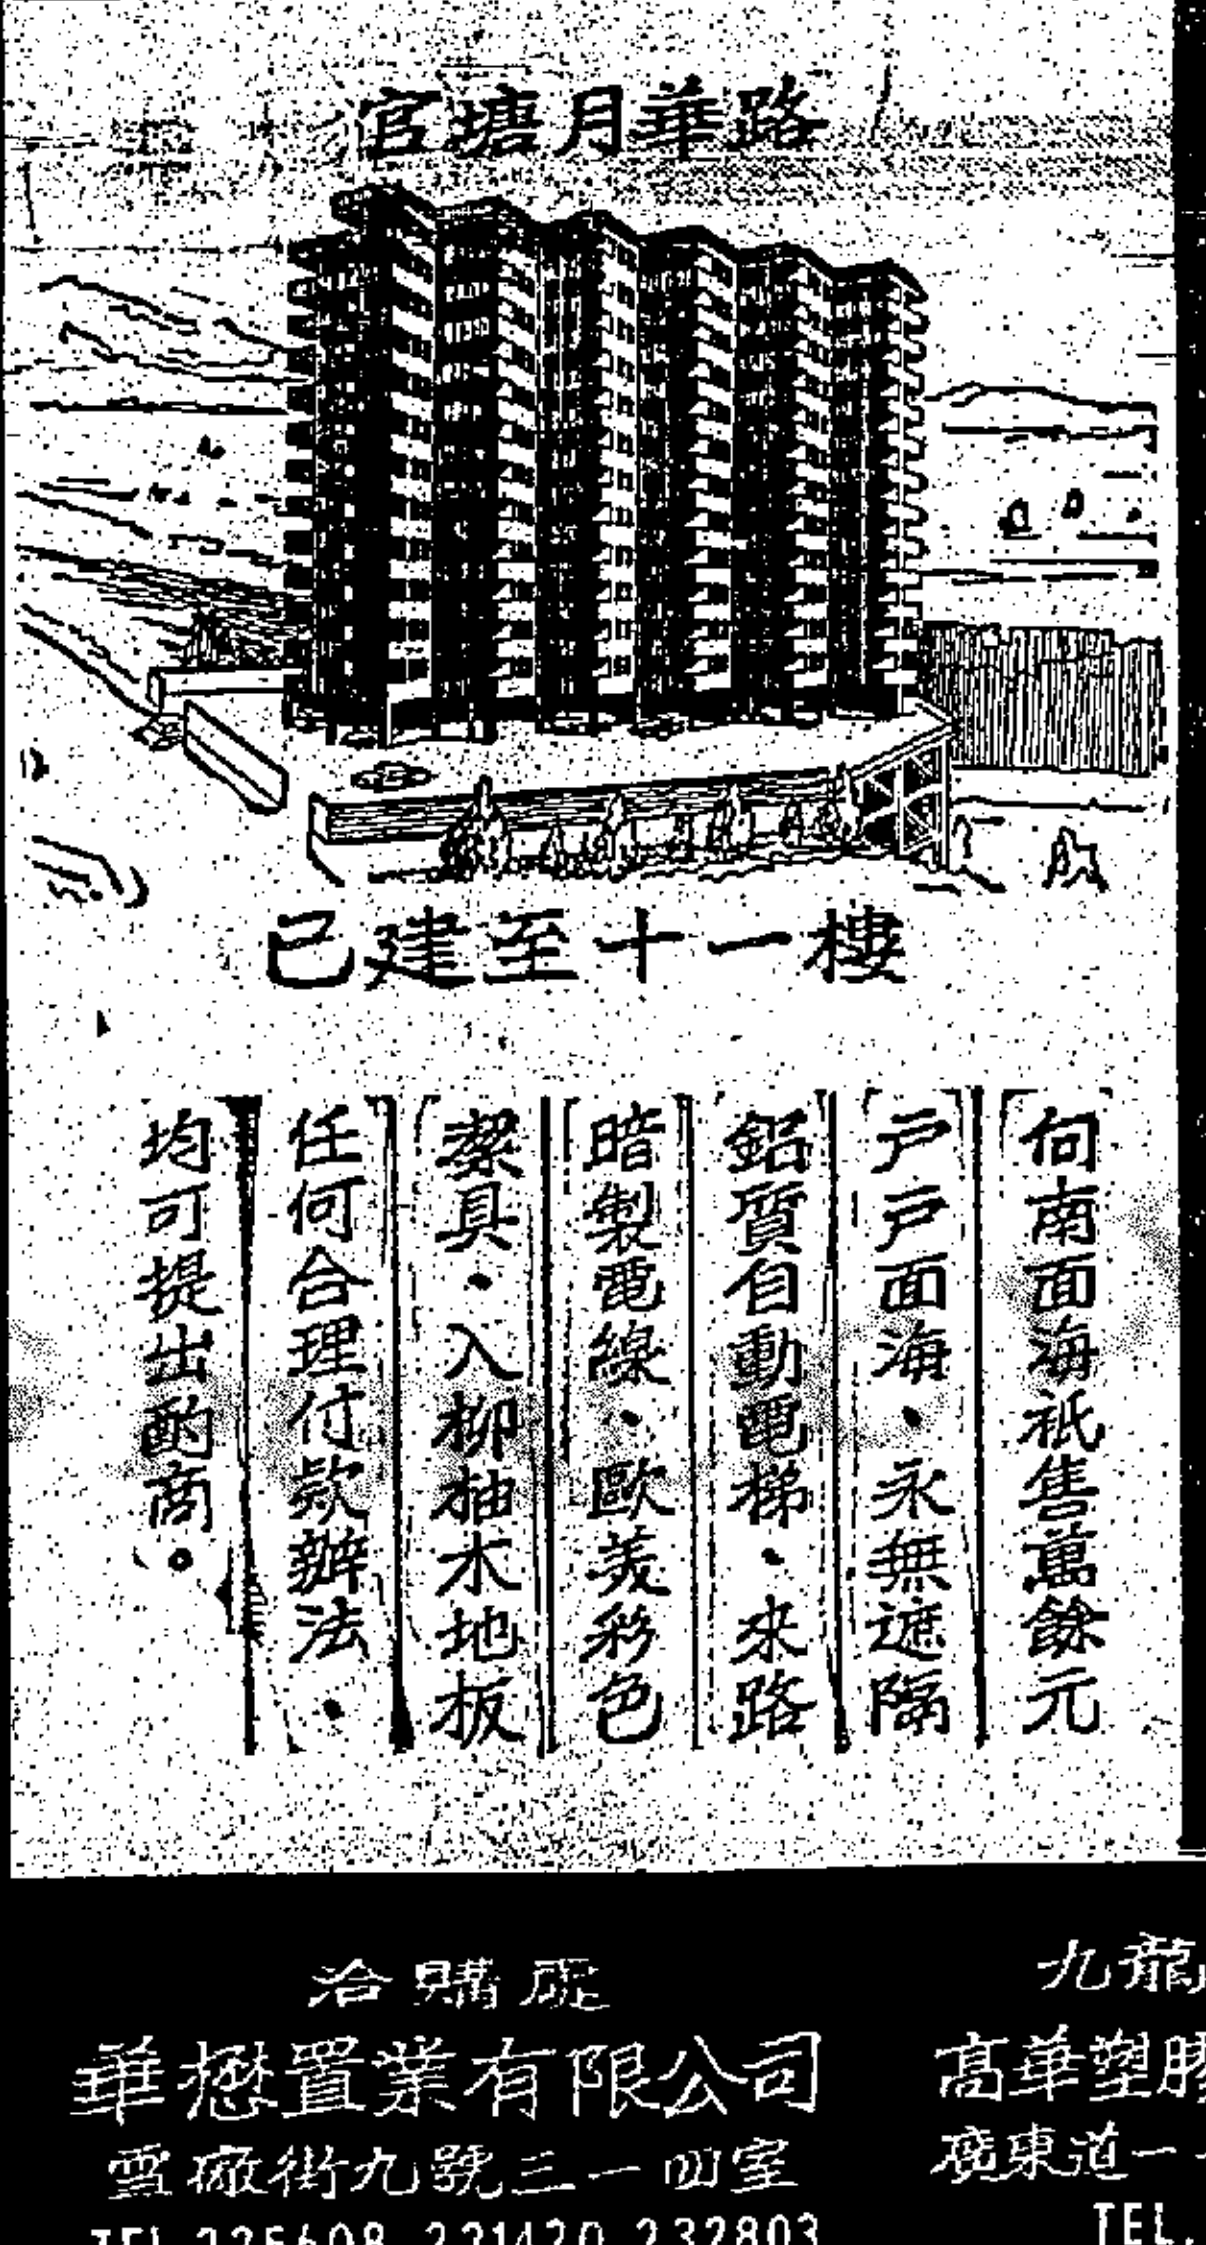 官塘月華路
已建至十一樓
向南面海祇售萬餘元
戶戶面海・永無遮隔
鋁質自動電梯・來路
暗製電線・歐美彩色
潔具・入柳柚木地板
任何合理付款辦法・
均可提出酌商。
洽購處
華懋置業有限公司
雪廠街九號三一四室
TEL. 235608 231420 232803
九龍
高華塑膠
廣東道一一
TEL.